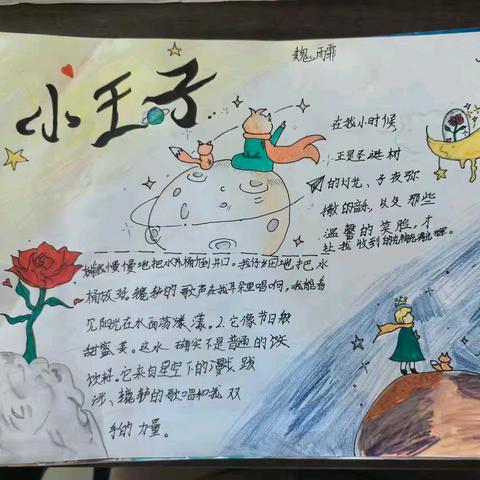 小王子
魏雨霏
在我小时候
正是圣诞树
的灯光、子夜弥
撒的音乐,以及那些
温馨的笑脸,才
让我收到的
慢慢地把水桶到井口。我仔细地把水
桶放
的歌声在我耳朵里唱响,我能看
见阳光在水面荡漾。2.它像节日般
甜蜜美。这水确实不是普通的饮
饮料。它来自星空下的 跋
涉、辘轳的歌唱和我双
手的力量。